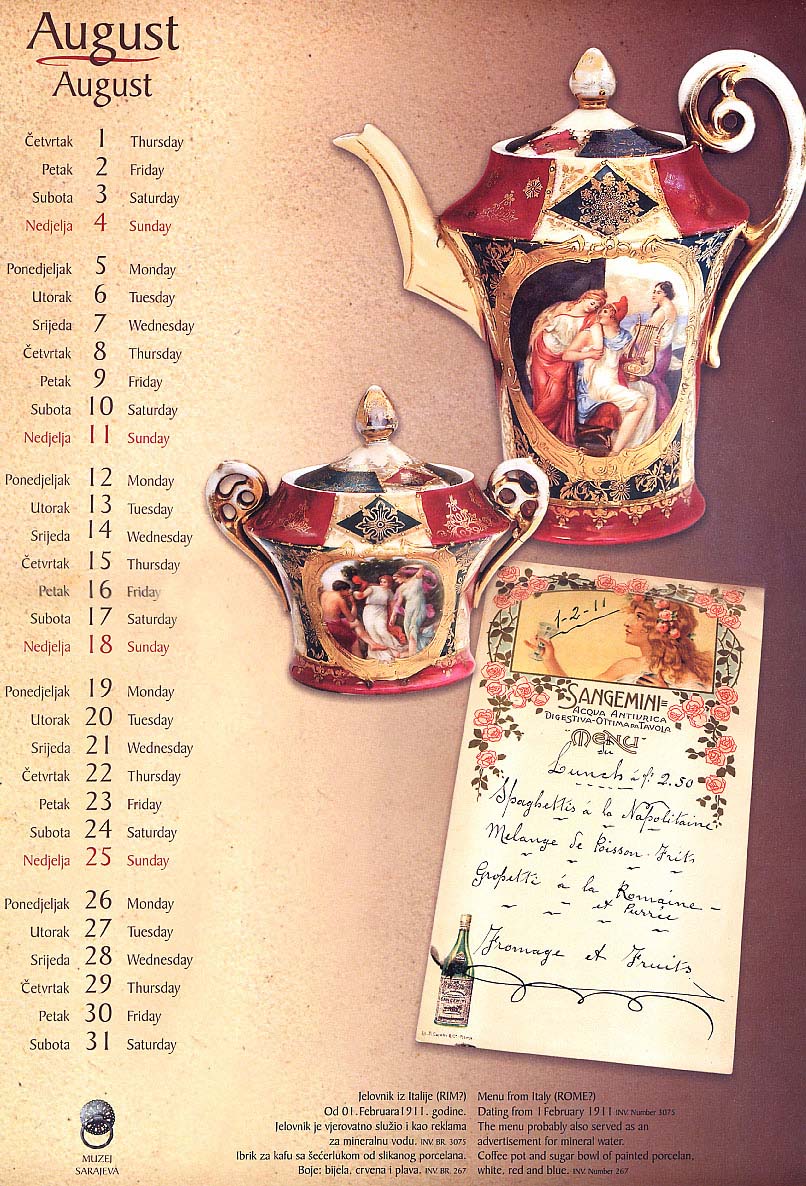 August
August
Četvrtak 1 Thursday
Petak 2 Friday
Subota 3 Saturday
Nedjelja 4 Sunday
Ponedjeljak 5 Monday
Utorak 6 Tuesday
Srijeda 7 Wednesday
Četvrtak 8 Thursday
Petak 9 Friday
Subota 10 Saturday
Nedjelja 11 Sunday
Ponedjeljak 12 Monday
Utorak 13 Tuesday
Srijeda 14 Wednesday
Četvrtak 15 Thursday
Petak 16 Friday
Subota 17 Saturday
Nedjelja 18 Sunday
Ponedjeljak 19 Monday
Utorak 20 Tuesday
Srijeda 21 Wednesday
Četvrtak 22 Thursday
Petak 23 Friday
Subota 24 Saturday
Nedjelja 25 Sunday
Ponedjeljak 26 Monday
Utorak 27 Tuesday
Srijeda 28 Wednesday
Četvrtak 29 Thursday
Petak 30 Friday
Subota 31 Saturday
1-2-11
SANGEMINI
ACQUA ANTIURICA
DIGESTIVA-OTTIMA DA TAVOLA
MENU
du
Lunch à fr 2.50
Spaghettis à la Napolitaine
Melange de Poisson Frits
à la Romaine
et Purrée
Fromage et Fruits
SANGEMINI
MUZEJ
SARAJEVA
Jelovnik iz Italije (RIM?)
Od 01. Februara1911. godine.
Jelovnik je vjerovatno služio i kao reklama
za mineralnu vodu. INV. BR. 3075
Ibrik za kafu sa šećerlukom od slikanog porcelana.
Boje: bijela, crvena i plava. INV. BR. 267
Menu from Italy (ROME?)
Dating from 1February 1911 INV. Number 3075
The menu probably also served as an
advertisement for mineral water.
Coffee pot and sugar bowl of painted porcelan,
white, red and blue. INV. Number 267